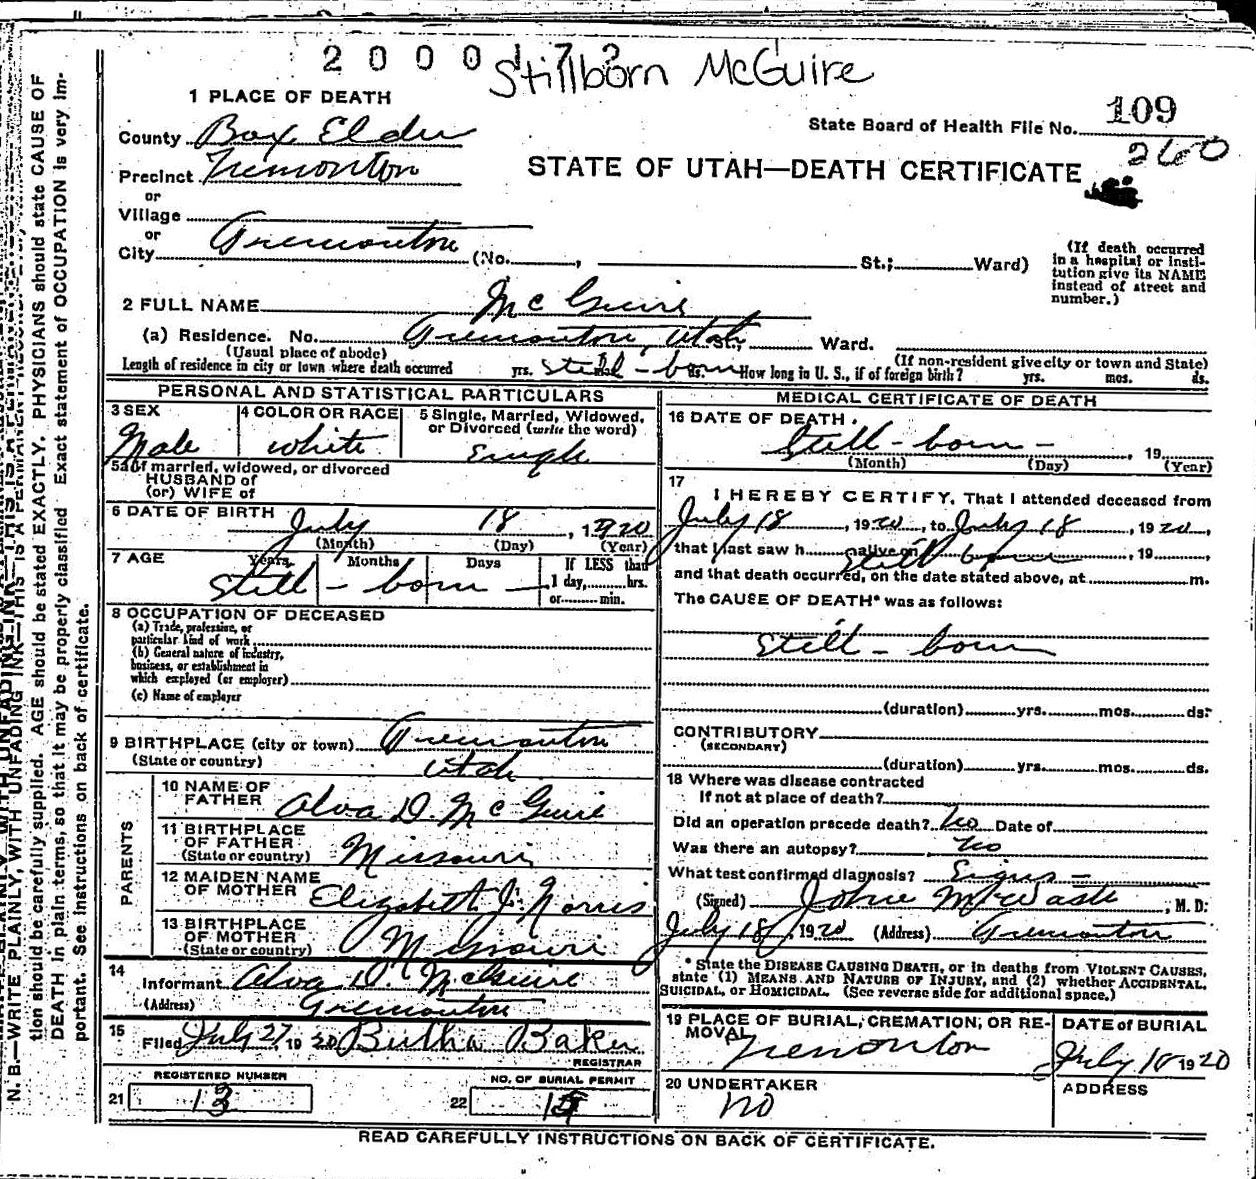 2000173
Stillborn McGuire
1 PLACE OF DEATH
State Board of Health File No. 109
260
County Box Elder
STATE OF UTAH—DEATH CERTIFICATE
Precinct Tremonton
or
Village
or
City Tremonton (No. , St.; Ward)
(If death occurred
in a hospital or insti-
tution give its NAME
instead of street and
number.)
2 FULL NAME McGuire
(a) Residence. No. Tremonton, Utah St., Ward.
(Usual place of abode)
(If non-resident give city or town and State)
Length of residence in city or town where death occurred yrs. still-born ds. How long in U. S., if of foreign birth? yrs. mos. ds.
PERSONAL AND STATISTICAL PARTICULARS
3 SEX
Male
4 COLOR OR RACE
white
5 Single, Married, Widowed,
or Divorced (write the word)
Single
5a If married, widowed, or divorced
HUSBAND of
(or) WIFE of
6 DATE OF BIRTH July 18, 1920
(Month) (Day) (Year)
7 AGE Years Months Days If LESS than
1 day, hrs.
or min.
Still-born
8 OCCUPATION OF DECEASED
(a) Trade, profession, or
particular kind of work
(b) General nature of industry,
business, or establishment in
which employed (or employer)
(c) Name of employer
9 BIRTHPLACE (city or town) Tremonton
(State or country) Utah
PARENTS
10 NAME OF
FATHER Alva D. McGuire
11 BIRTHPLACE
OF FATHER
(State or country) Missouri
12 MAIDEN NAME
OF MOTHER Elizabeth J. Norris
13 BIRTHPLACE
OF MOTHER
(State or country) Missouri
14
Informant Alva D. McGuire
(Address) Tremonton
15
Filed July 27, 1920 Bertha Baker
REGISTRAR
REGISTERED NUMBER
21 13
NO. OF BURIAL PERMIT
22
MEDICAL CERTIFICATE OF DEATH
16 DATE OF DEATH
Still-born - , 19
(Month) (Day) (Year)
17
I HEREBY CERTIFY, That I attended deceased from
July 18, 1920, to July 18, 1920,
that I last saw h alive on Still born, 19
and that death occurred, on the date stated above, at m.
The CAUSE OF DEATH* was as follows:
Still-born
(duration) yrs. mos. ds.
CONTRIBUTORY
(SECONDARY)
(duration) yrs. mos. ds.
18 Where was disease contracted
If not at place of death?
Did an operation precede death? No Date of
Was there an autopsy? No
What test confirmed diagnosis? Signs -
(Signed) , M. D.
July 18, 1920 (Address) Tremonton
* State the DISEASE CAUSING DEATH, or in deaths from VIOLENT CAUSES,
state (1) MEANS AND NATURE OF INJURY, and (2) whether ACCIDENTAL,
SUICIDAL, or HOMICIDAL. (See reverse side for additional space.)
19 PLACE OF BURIAL, CREMATION, OR RE-
MOVAL
Tremonton
DATE of BURIAL
July 18 1920
20 UNDERTAKER
no
ADDRESS
READ CAREFULLY INSTRUCTIONS ON BACK OF CERTIFICATE.
N. B.—WRITE PLAINLY, WITH UNFADING INK—THIS IS A PERMANENT RECORD.
tion should be carefully supplied. AGE should be stated EXACTLY. PHYSICIANS should state CAUSE OF
DEATH in plain terms, so that it may be properly classified. Exact statement of OCCUPATION is very im-
portant. See instructions on back of certificate.